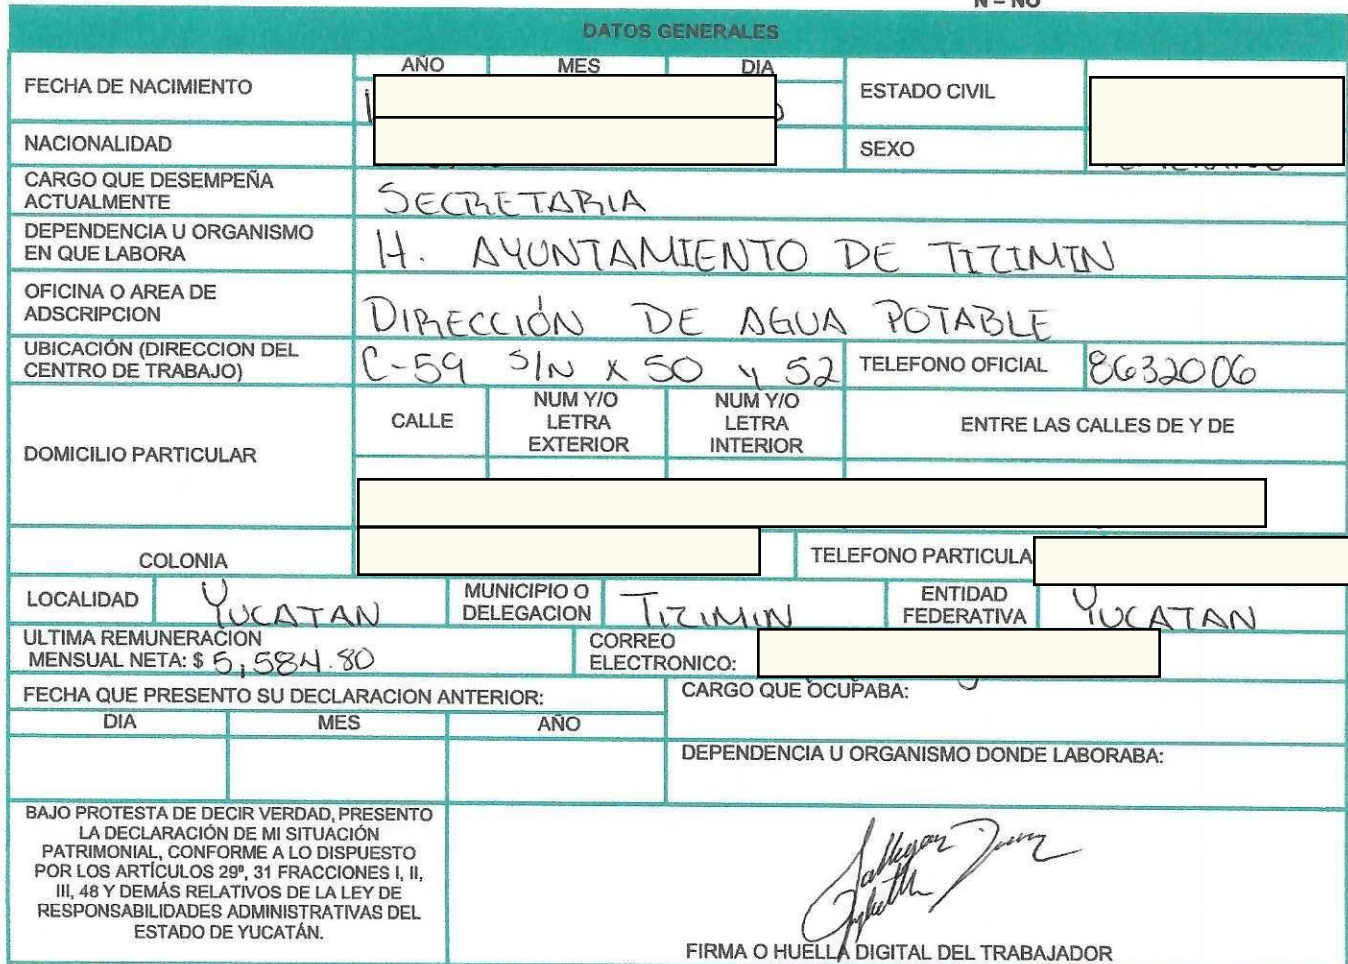 N = NO
DATOS GENERALES
FECHA DE NACIMIENTO AÑO MES DIA ESTADO CIVIL
NACIONALIDAD SEXO
CARGO QUE DESEMPEÑA ACTUALMENTE SECRETARIA
DEPENDENCIA U ORGANISMO EN QUE LABORA H. AYUNTAMIENTO DE TIZIMIN
OFICINA O AREA DE ADSCRIPCION DIRECCIÓN DE AGUA POTABLE
UBICACIÓN (DIRECCION DEL CENTRO DE TRABAJO) C-59 S/N X 50 y 52 TELEFONO OFICIAL 8632006
DOMICILIO PARTICULAR CALLE NUM Y/O LETRA EXTERIOR NUM Y/O LETRA INTERIOR ENTRE LAS CALLES DE Y DE
COLONIA TELEFONO PARTICULA
LOCALIDAD YUCATAN MUNICIPIO O DELEGACION TIZIMIN ENTIDAD FEDERATIVA YUCATAN
ULTIMA REMUNERACION MENSUAL NETA: $ 5,584.80 CORREO ELECTRONICO:
FECHA QUE PRESENTO SU DECLARACION ANTERIOR: CARGO QUE OCUPABA:
DIA MES AÑO
DEPENDENCIA U ORGANISMO DONDE LABORABA:
BAJO PROTESTA DE DECIR VERDAD, PRESENTO
LA DECLARACIÓN DE MI SITUACIÓN
PATRIMONIAL, CONFORME A LO DISPUESTO
POR LOS ARTÍCULOS 29º, 31 FRACCIONES I, II,
III, 48 Y DEMÁS RELATIVOS DE LA LEY DE
RESPONSABILIDADES ADMINISTRATIVAS DEL
ESTADO DE YUCATÁN.
FIRMA O HUELLA DIGITAL DEL TRABAJADOR